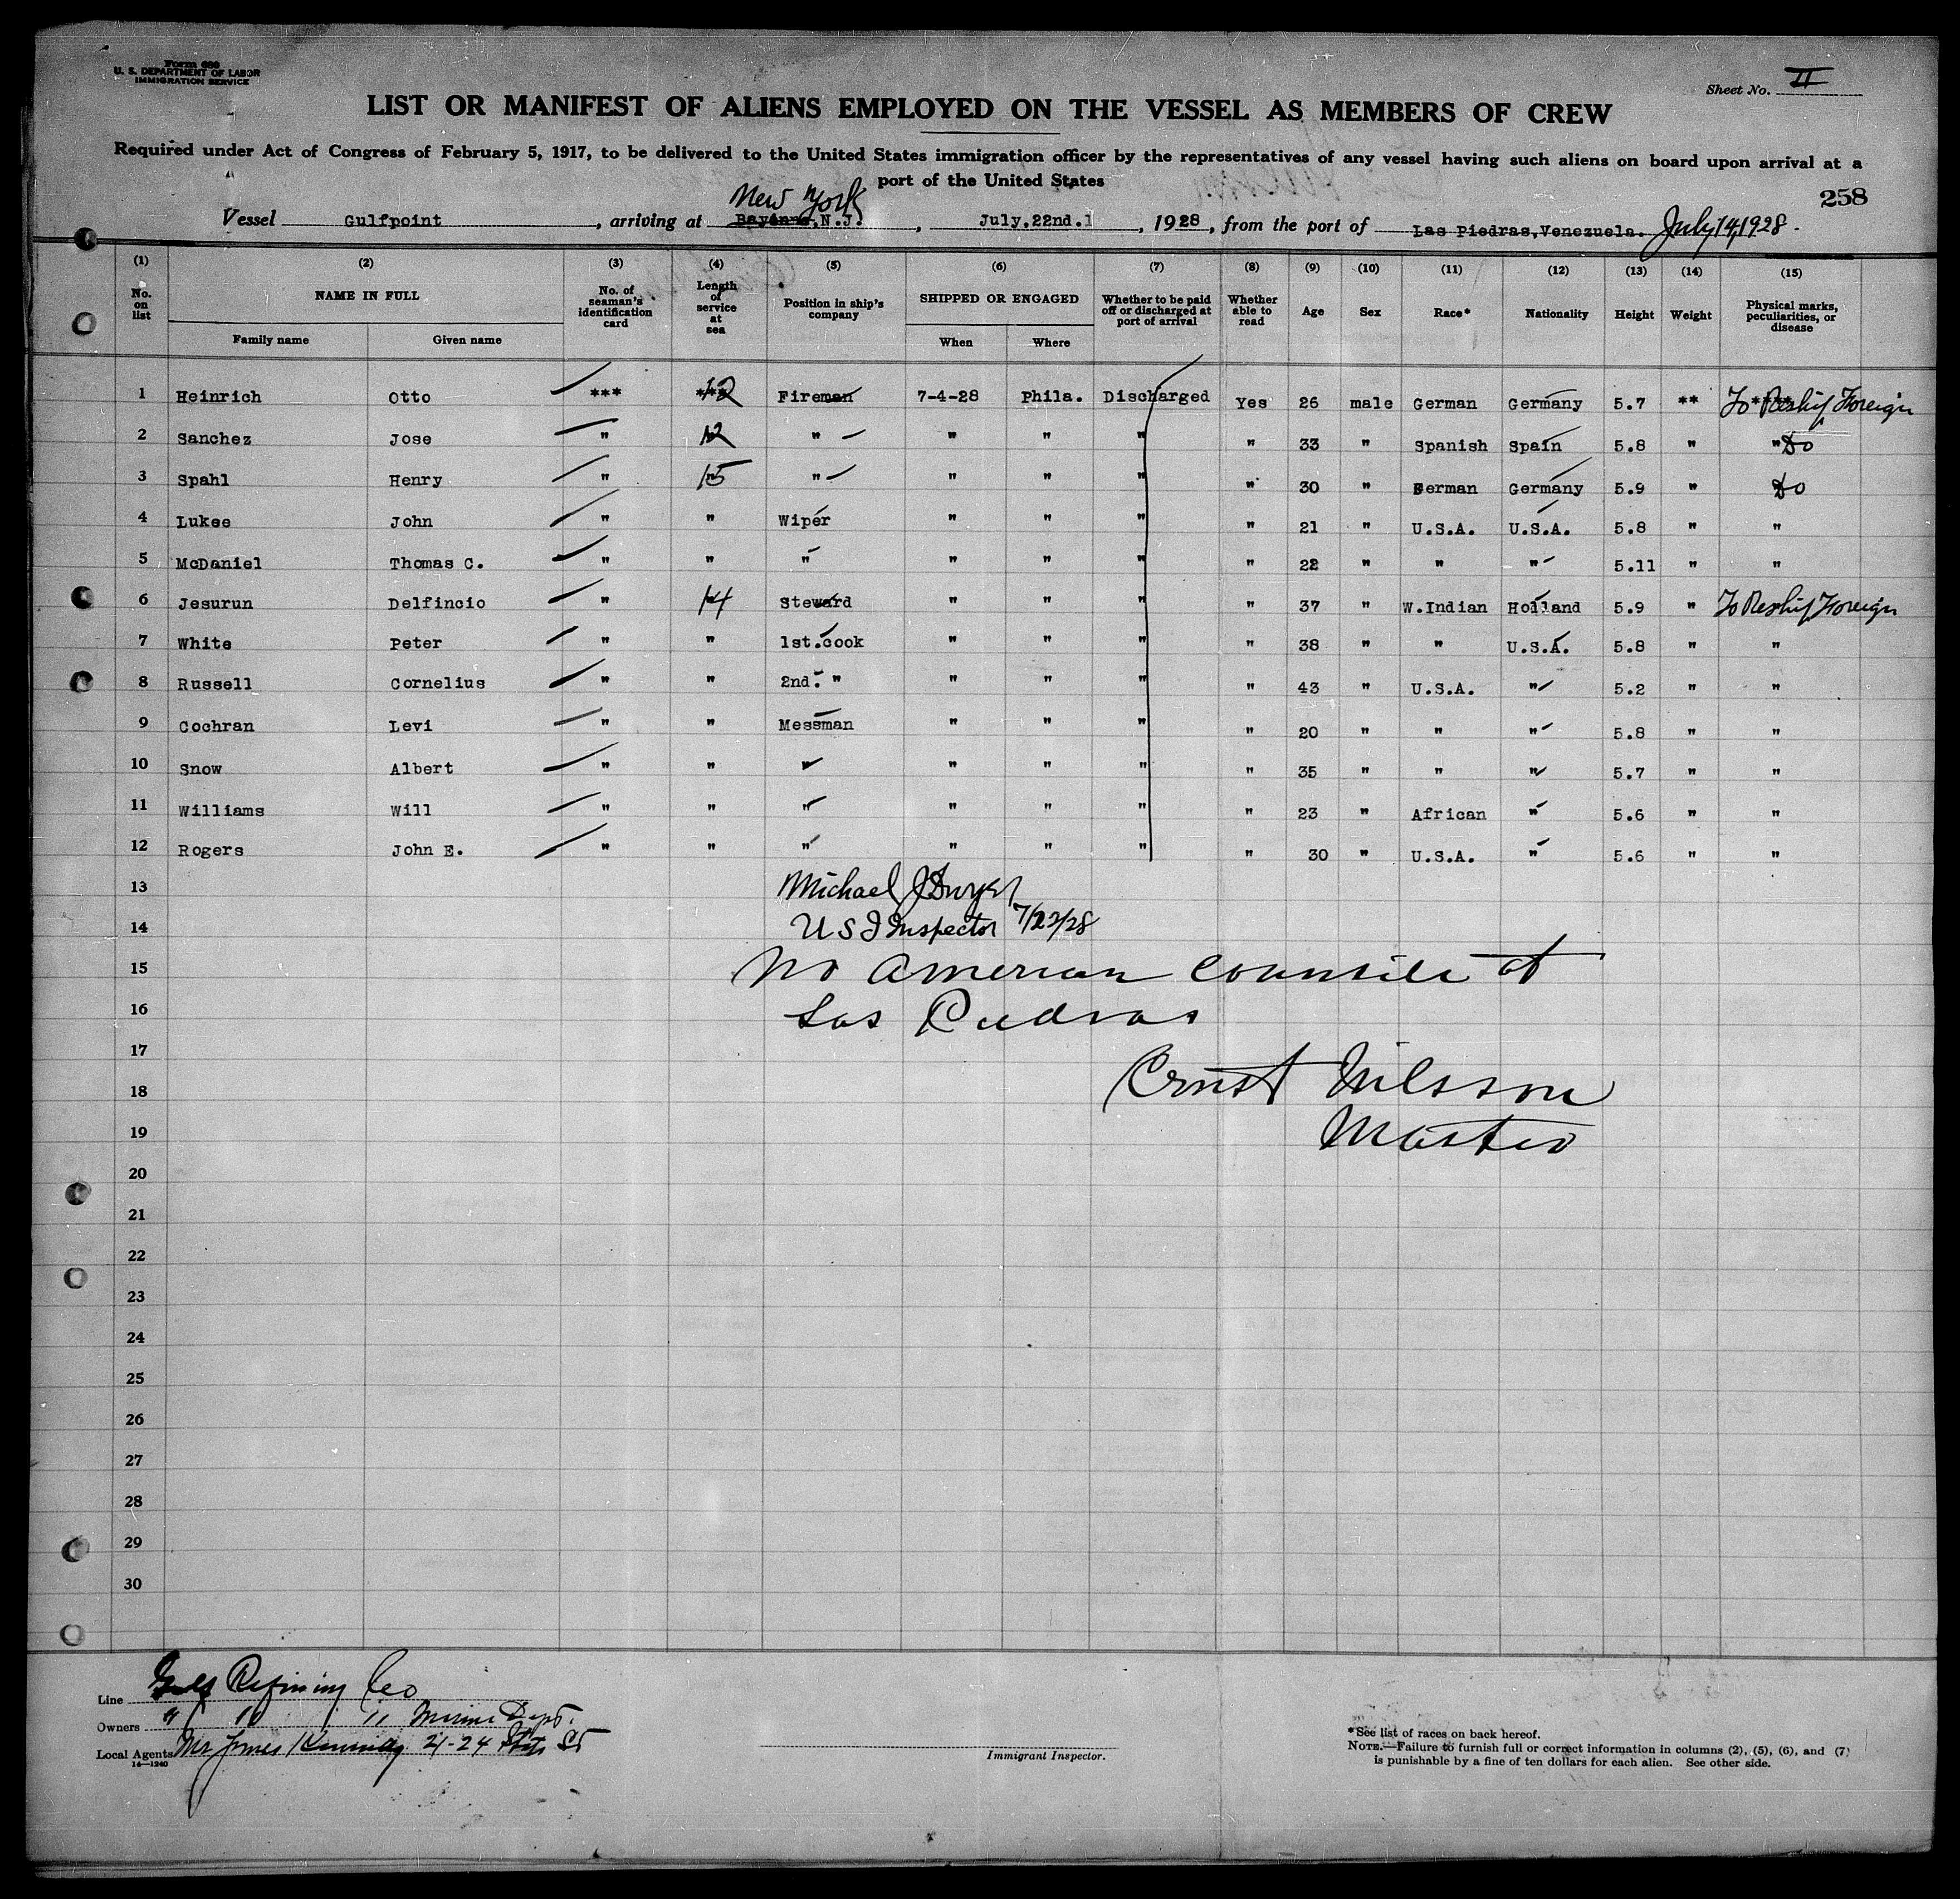 Form 680
U. S. DEPARTMENT OF LABOR
IMMIGRATION SERVICE
Sheet No. II
LIST OR MANIFEST OF ALIENS EMPLOYED ON THE VESSEL AS MEMBERS OF CREW
Required under Act of Congress of February 5, 1917, to be delivered to the United States immigration officer by the representatives of any vessel having such aliens on board upon arrival at a
port of the United States
258
New York
Vessel Gulfpoint, arriving at Bayonne, N.J., July, 22nd. 1928, from the port of Las Piedras, Venezuela. July 14, 1928.
(1) (2) (3) (4) (5) (6) (7) (8) (9) (10) (11) (12) (13) (14) (15)
No. on list NAME IN FULL No. of seaman's identification card Length of service at sea Position in ship's company SHIPPED OR ENGAGED Whether to be paid off or discharged at port of arrival Whether able to read Age Sex Race* Nationality Height Weight Physical marks, peculiarities, or disease
Family name Given name When Where
1 Heinrich Otto *** 12 Fireman 7-4-28 Phila. Discharged Yes 26 male German Germany 5.7 ** To Reship Foreign
2 Sanchez Jose " 12 " " " " " 33 " Spanish Spain 5.8 " " Do
3 Spahl Henry " 15 " " " " " 30 " German Germany 5.9 " Do
4 Lukee John " " Wiper " " " " 21 " U.S.A. U.S.A. 5.8 " "
5 McDaniel Thomas C. " " " " " " " 22 " " " 5.11 " "
6 Jesurun Delfincio " 14 Steward " " " " 37 " W.Indian Holland 5.9 " To Reship Foreign
7 White Peter " " 1st.cook " " " " 38 " " U.S.A. 5.8 " "
8 Russell Cornelius " " 2nd. " " " " " 43 " U.S.A. " 5.2 " "
9 Cochran Levi " " Messman " " " " 20 " " " 5.8 " "
10 Snow Albert " " " " " " " 35 " " " 5.7 " "
11 Williams Will " " " " " " " 23 " African " 5.6 " "
12 Rogers John E. " " " " " " " 30 " U.S.A. " 5.6 " "
13 Michael J Dwyer
14 U S I Inspector 7/23/28
15 No American Counsile at
16 Las Piedras
17
18 Ernst Nilsson
19 Master
20
21
22
23
24
25
26
27
28
29
30
Line Gulf Refining Co
Owners " " " Marine Dept.
Local Agents Mr James Kennedy 21-24 State St
14—1240
Immigrant Inspector.
*See list of races on back hereof.
NOTE.—Failure to furnish full or correct information in columns (2), (5), (6), and (7)
is punishable by a fine of ten dollars for each alien. See other side.